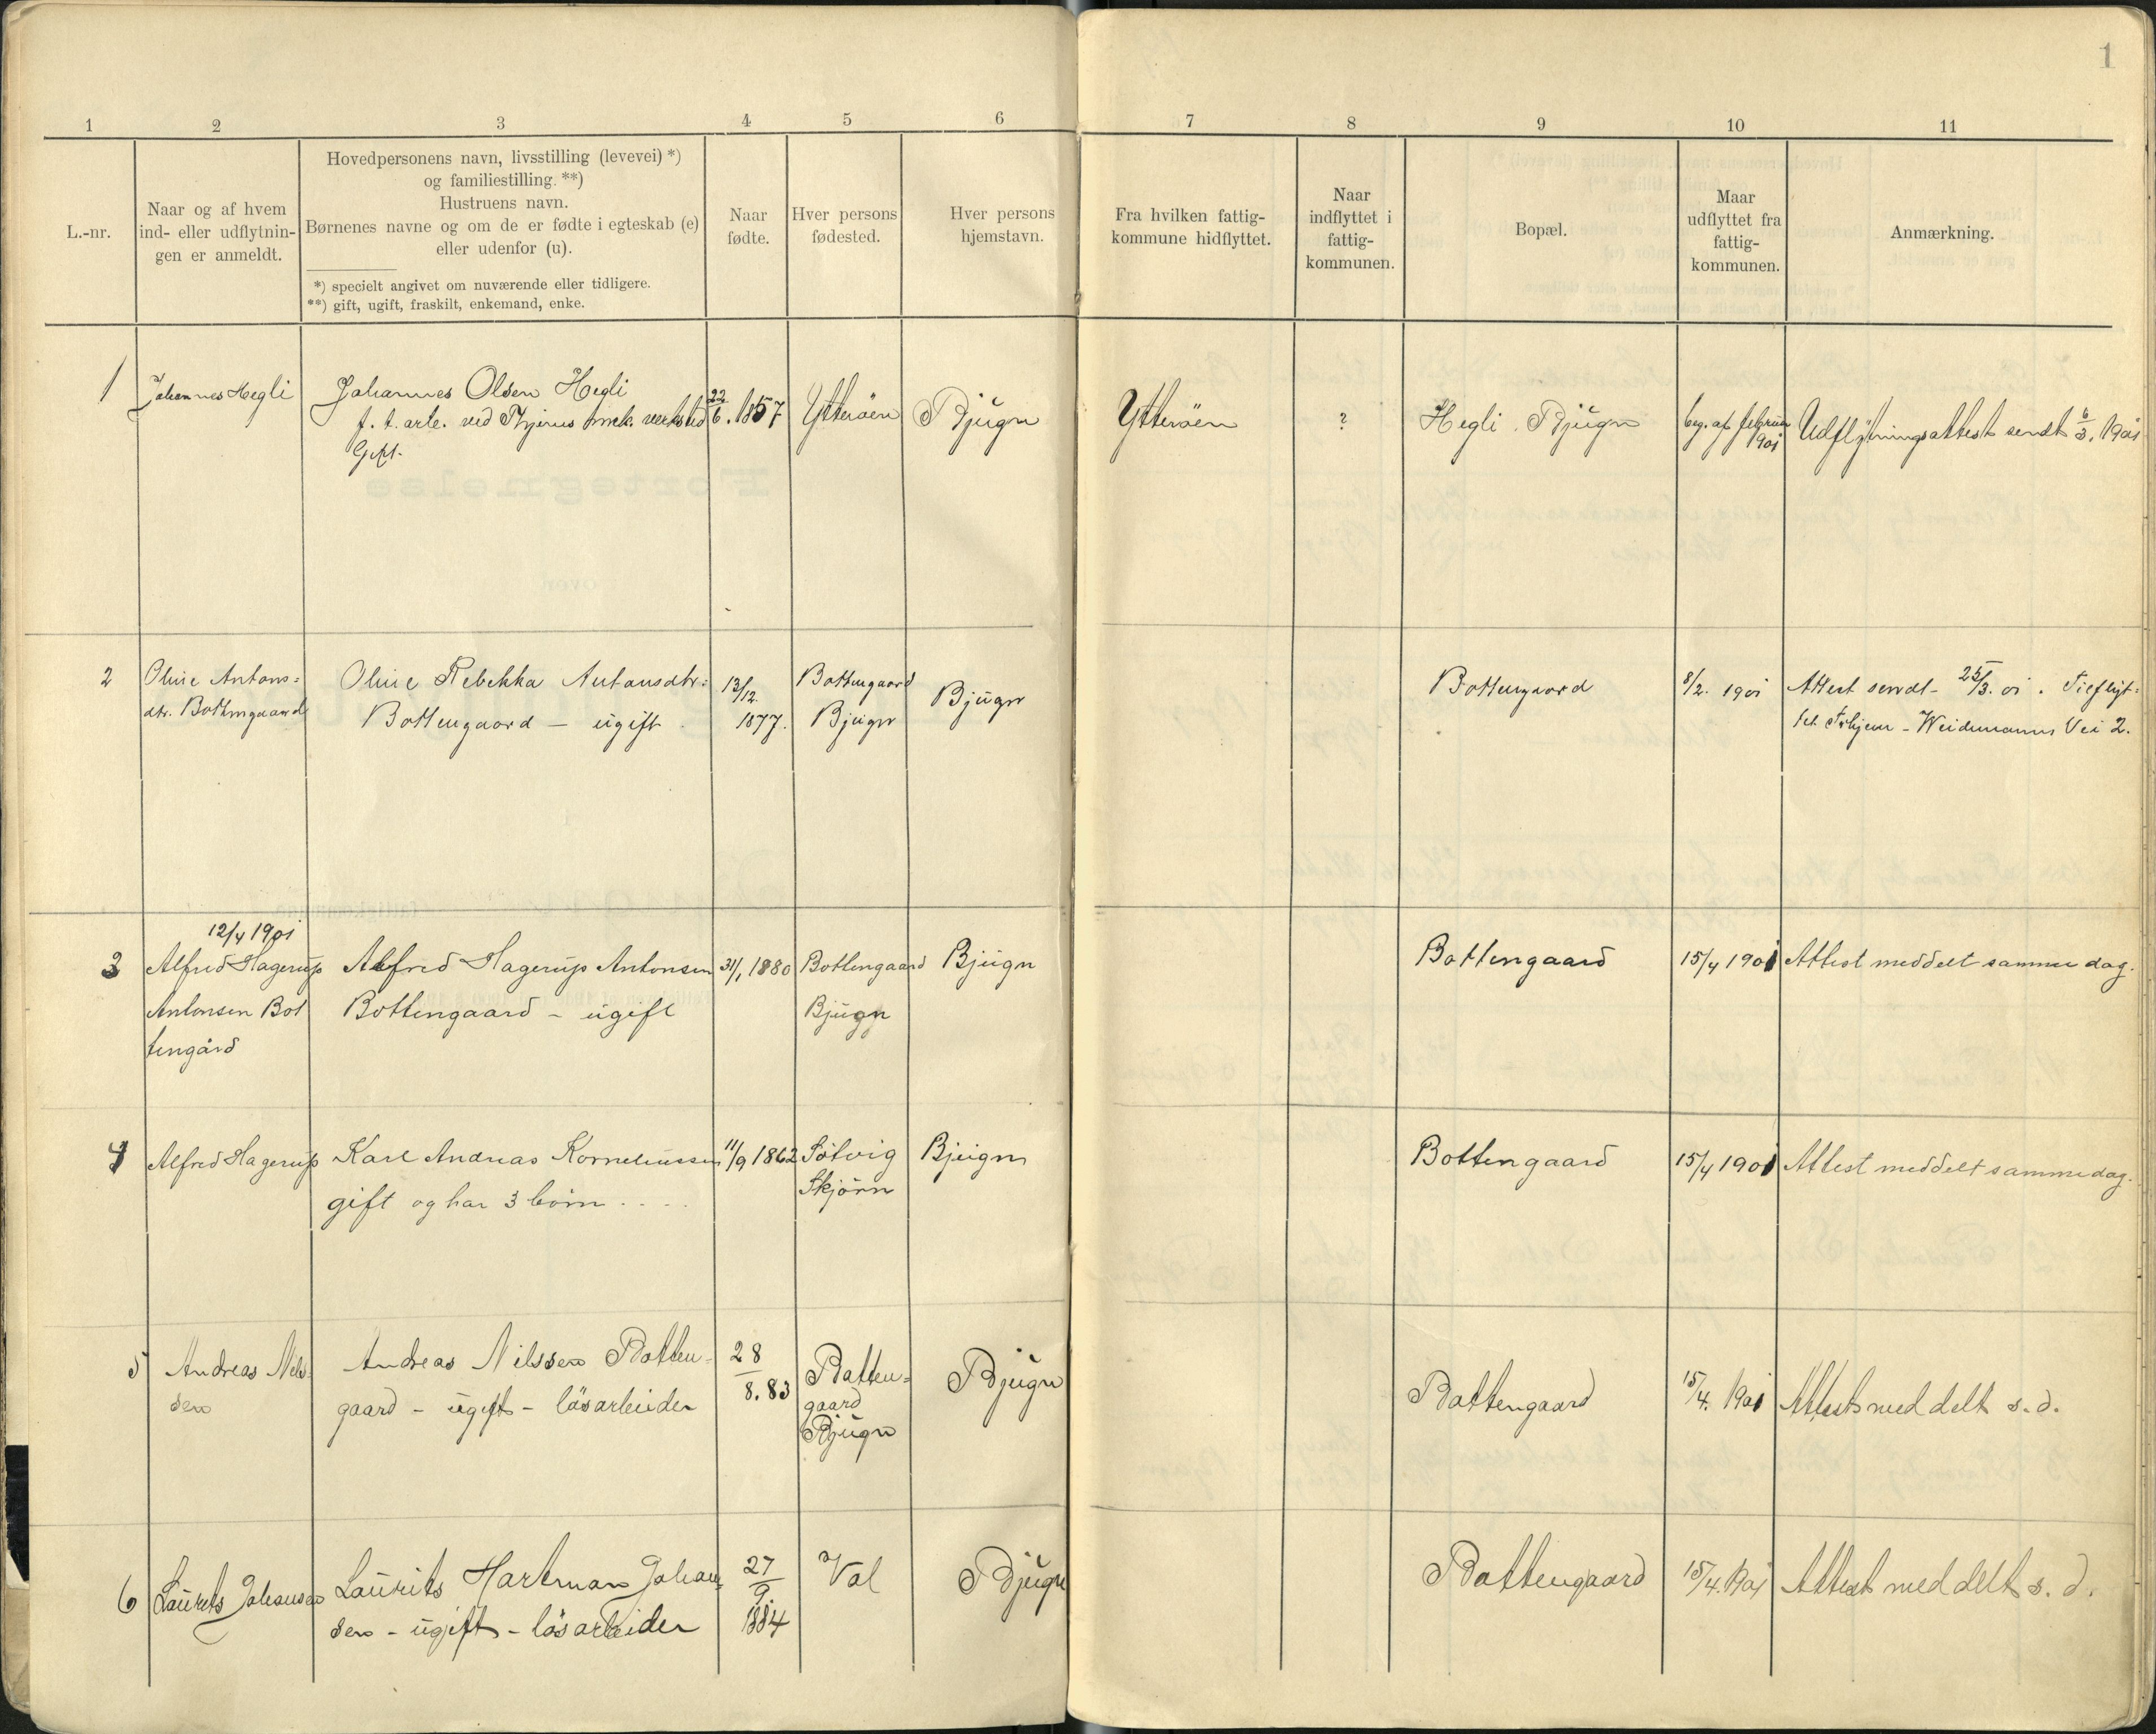 1
1 2 3 4 5 6 7 8 9 10 11
L.-nr.
Naar og af hvem
ind- eller udflytnin-
gen er anmeldt.
Hovedpersonens navn, livsstilling (levevei) *)
og familiestilling. **)
Hustruens navn.
Børnenes navne og om de er fødte i egteskab (e)
eller udenfor (u).
*) specielt angivet om nuværende eller tidligere.
**) gift, ugift, fraskilt, enkemand, enke.
Naar
fødte.
Hver persons
fødested.
Hver persons
hjemstavn.
Fra hvilken fattig-
kommune hidflyttet.
Naar
indflyttet i
fattig-
kommunen.
Bopæl.
Maar
udflyttet fra
fattig-
kommunen.
Anmærkning.
1
Johannes Hegli
Johannes Olsen Hegli
f. t. arb. ved Thjems mek. verksted
Gift.
22/6. 1857
Ytterøen
Bjugn
Ytterøen
?
Hegli. Bjugn
beg. af februar
1901
Udflytningsattest sendt 6/3. 1901
2
Oline Antons=
dtr. Bottengaard
Oline Rebekka Antonsdtr.
Bottengaard – ugift
13/12.
1877.
Bottengaard
Bjugn
Bjugn
Bottengaard
8/2. 1901
Attest sendt – 25/3. 01. Tilflyt=
tet Trhjem – Weidemanns Vei 2.
3
12/4 1901
Alfred Hagerup
Antonsen Bot
tengård
Alfred Hagerup Antonsen
Bottengaard – ugift
31/1 1880
Bottengaard
Bjugn
Bjugn
Bottengaard
15/4 1901
Attest meddelt samme dag.
4
Alfred Hagerup
Karl Andreas Korneliussen
gift og har 3 børn . . . .
11/9 1862
Søtvig
Skjørn
Bjugn
Bottengaard
15/4 1901
Attest meddelt samme dag.
5
Andreas Nils-
sen
Andreas Nilssen Botten-
gaard – ugift – løsarbeider
28
8. 83
Botten=
gaard
Bjugn
Bjugn
Bottengaard
15/4. 1901
Attest meddelt s. d.
6
Laurits Johansen
Laurits Hartman Johan-
sen – ugift – løsarbeider
27
9.
1884
Val
Bjugn
Bottengaard
15/4. 1901
Attest meddelt s. d.